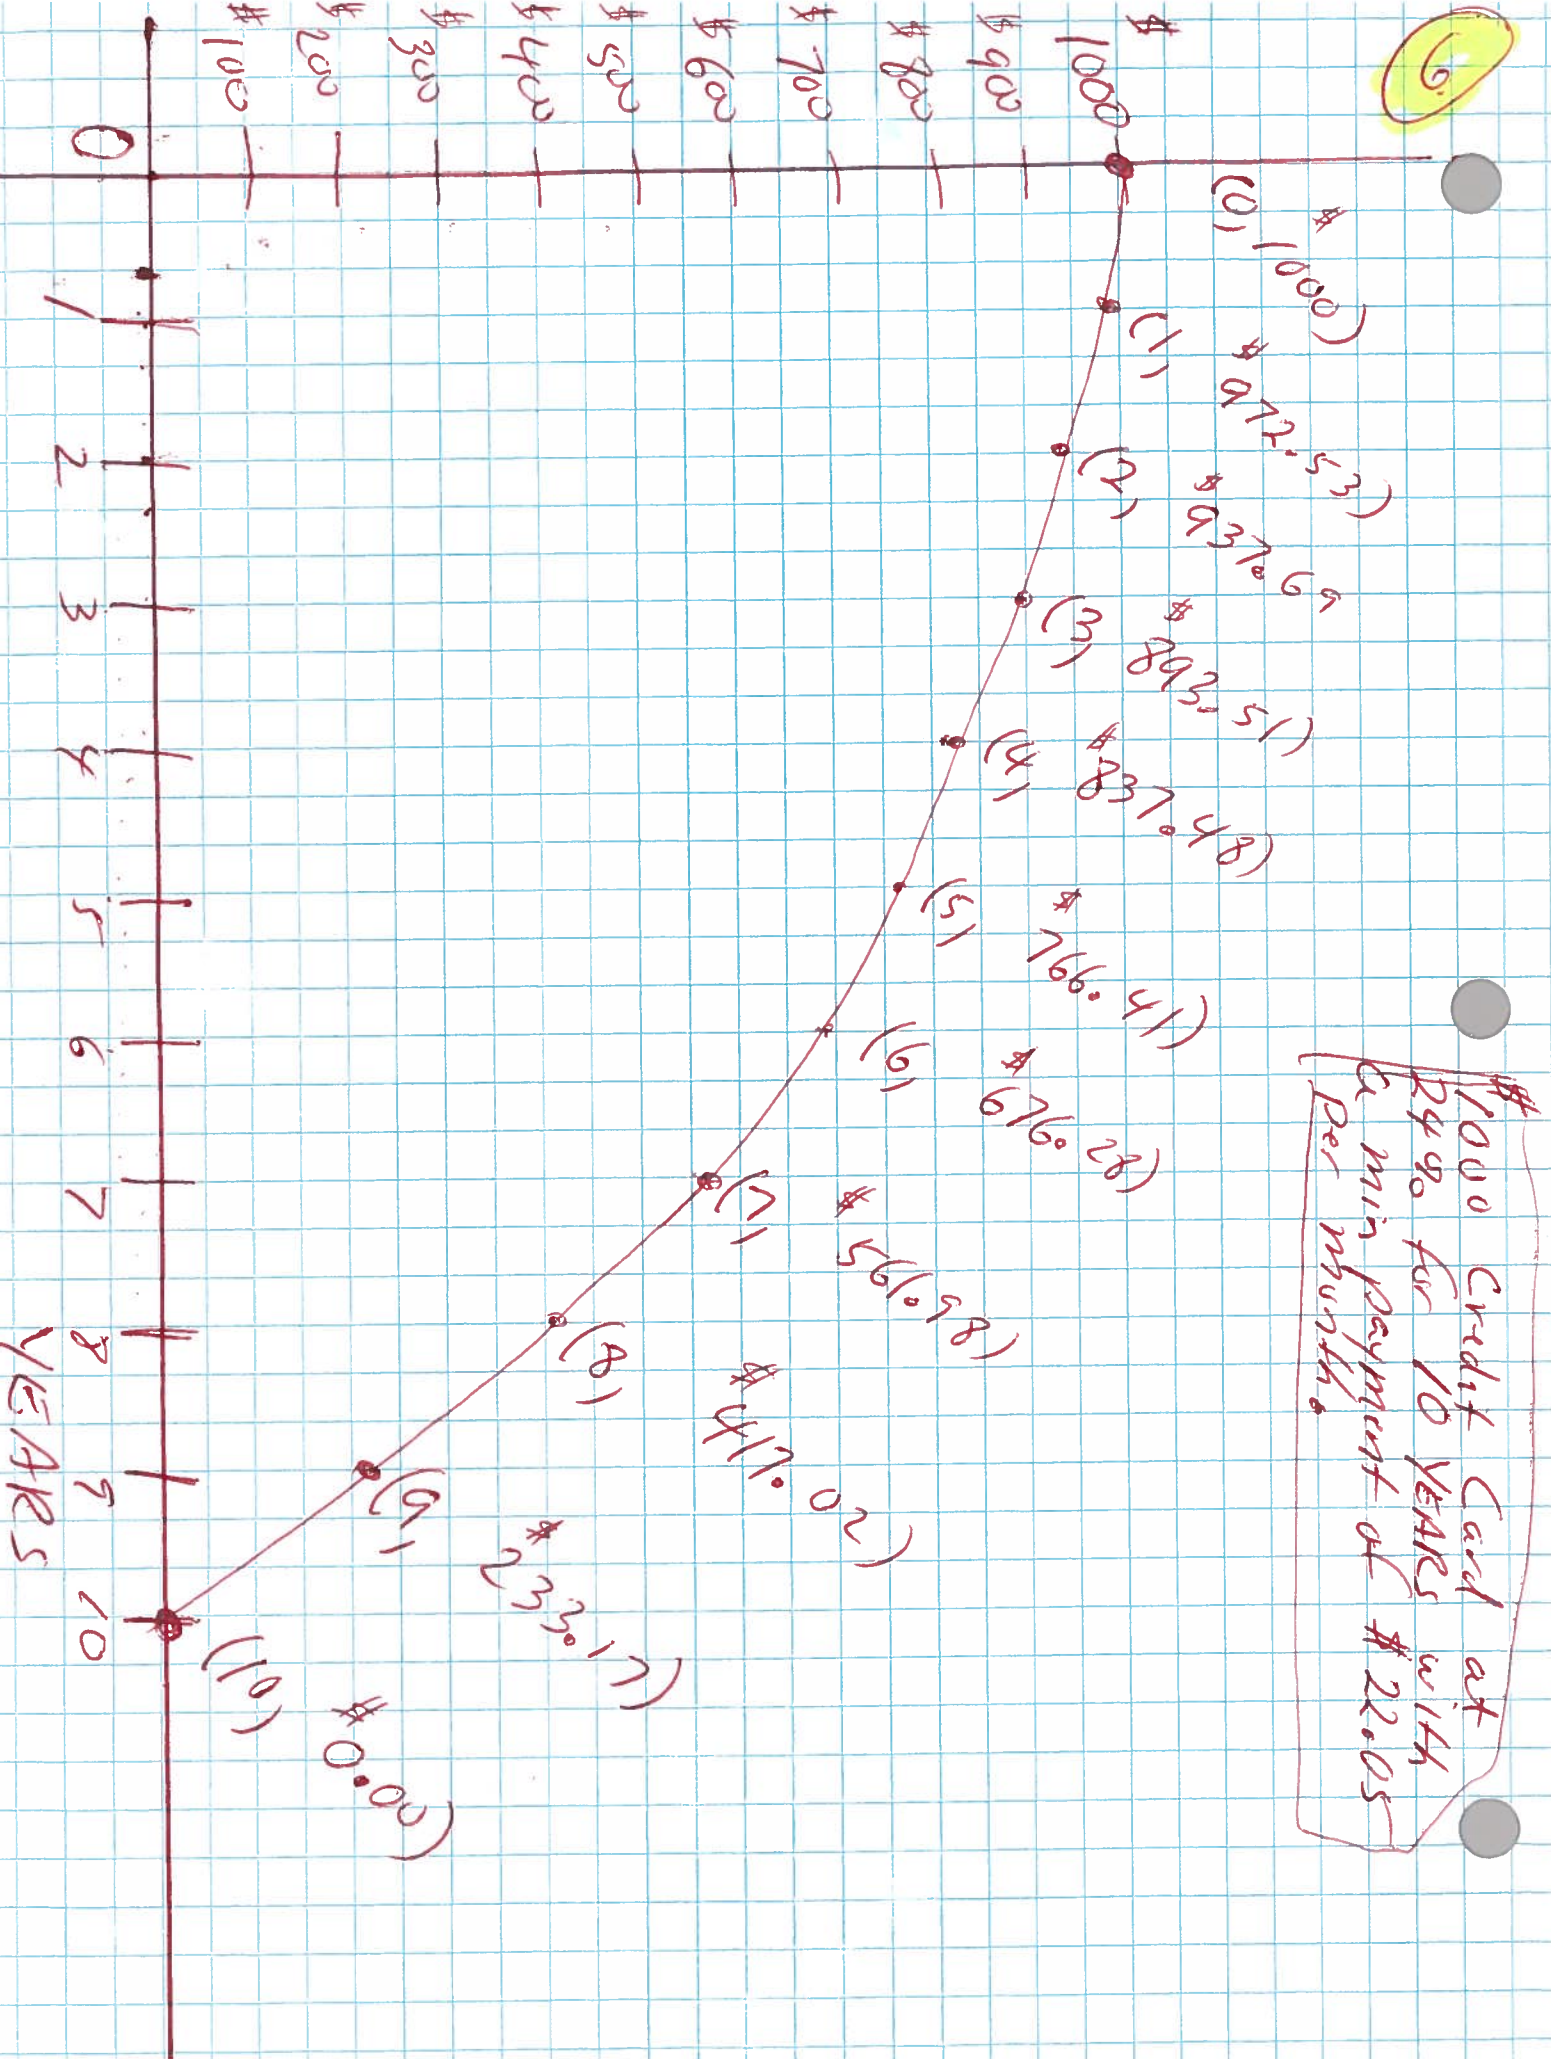 6
$1000 Credit Card at
24% for 10 YEARS with
a min payment of $22.05
per month.
$1000
$900
$800
$700
$600
$500
$400
$300
$200
$100
(0, $1000)
(1, $972.53)
(2, $937.69
(3, $893.51)
(4, $837.48)
(5, $766.41)
(6, $676.28)
(7, $561.98)
(8, $417.02)
(9, $233.17)
(10, $0.00)
0 1 2 3 4 5 6 7 8 9 10
YEARS